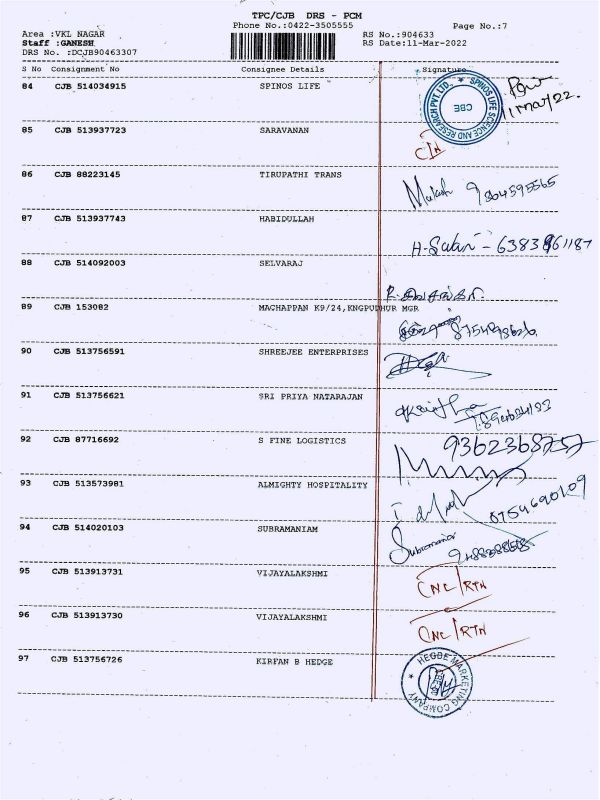 TPC/CJB DRS - PCM
Phone No.:0422-3505555
Page No.:7
Area :VKL NAGAR
RS No.:904633
Staff :GANESH
RS Date:11-Mar-2022
DRS No. :DCJB90463307
S No Consignment No Consignee Details Signature
84 CJB 514034915 SPINOS LIFE
SPINOS LIFE SCIENCE AND RESEARCH PVT. LTD. * CBE
11 Mar/22.
85 CJB 513937723 SARAVANAN
86 CJB 88223145 TIRUPATHI TRANS
9864595565
87 CJB 513937743 HABIDULLAH
88 CJB 514092003 SELVARAJ
89 CJB 153082 MACHAPPAN K9/24,KNGPUDHUR MGR
90 CJB 513756591 SHREEJEE ENTERPRISES
91 CJB 513756621 SRI PRIYA NATARAJAN
92 CJB 87716692 S FINE LOGISTICS
9362368757
93 CJB 513573981 ALMIGHTY HOSPITALITY
8754690109
94 CJB 514020103 SUBRAMANIAM
Subramanian
95 CJB 513913731 VIJAYALAKSHMI
CNC/RTN
96 CJB 513913730 VIJAYALAKSHMI
CNC/RTN
97 CJB 513756726 KIRFAN B HEDGE
HEGDE MARKETING COMPANY *